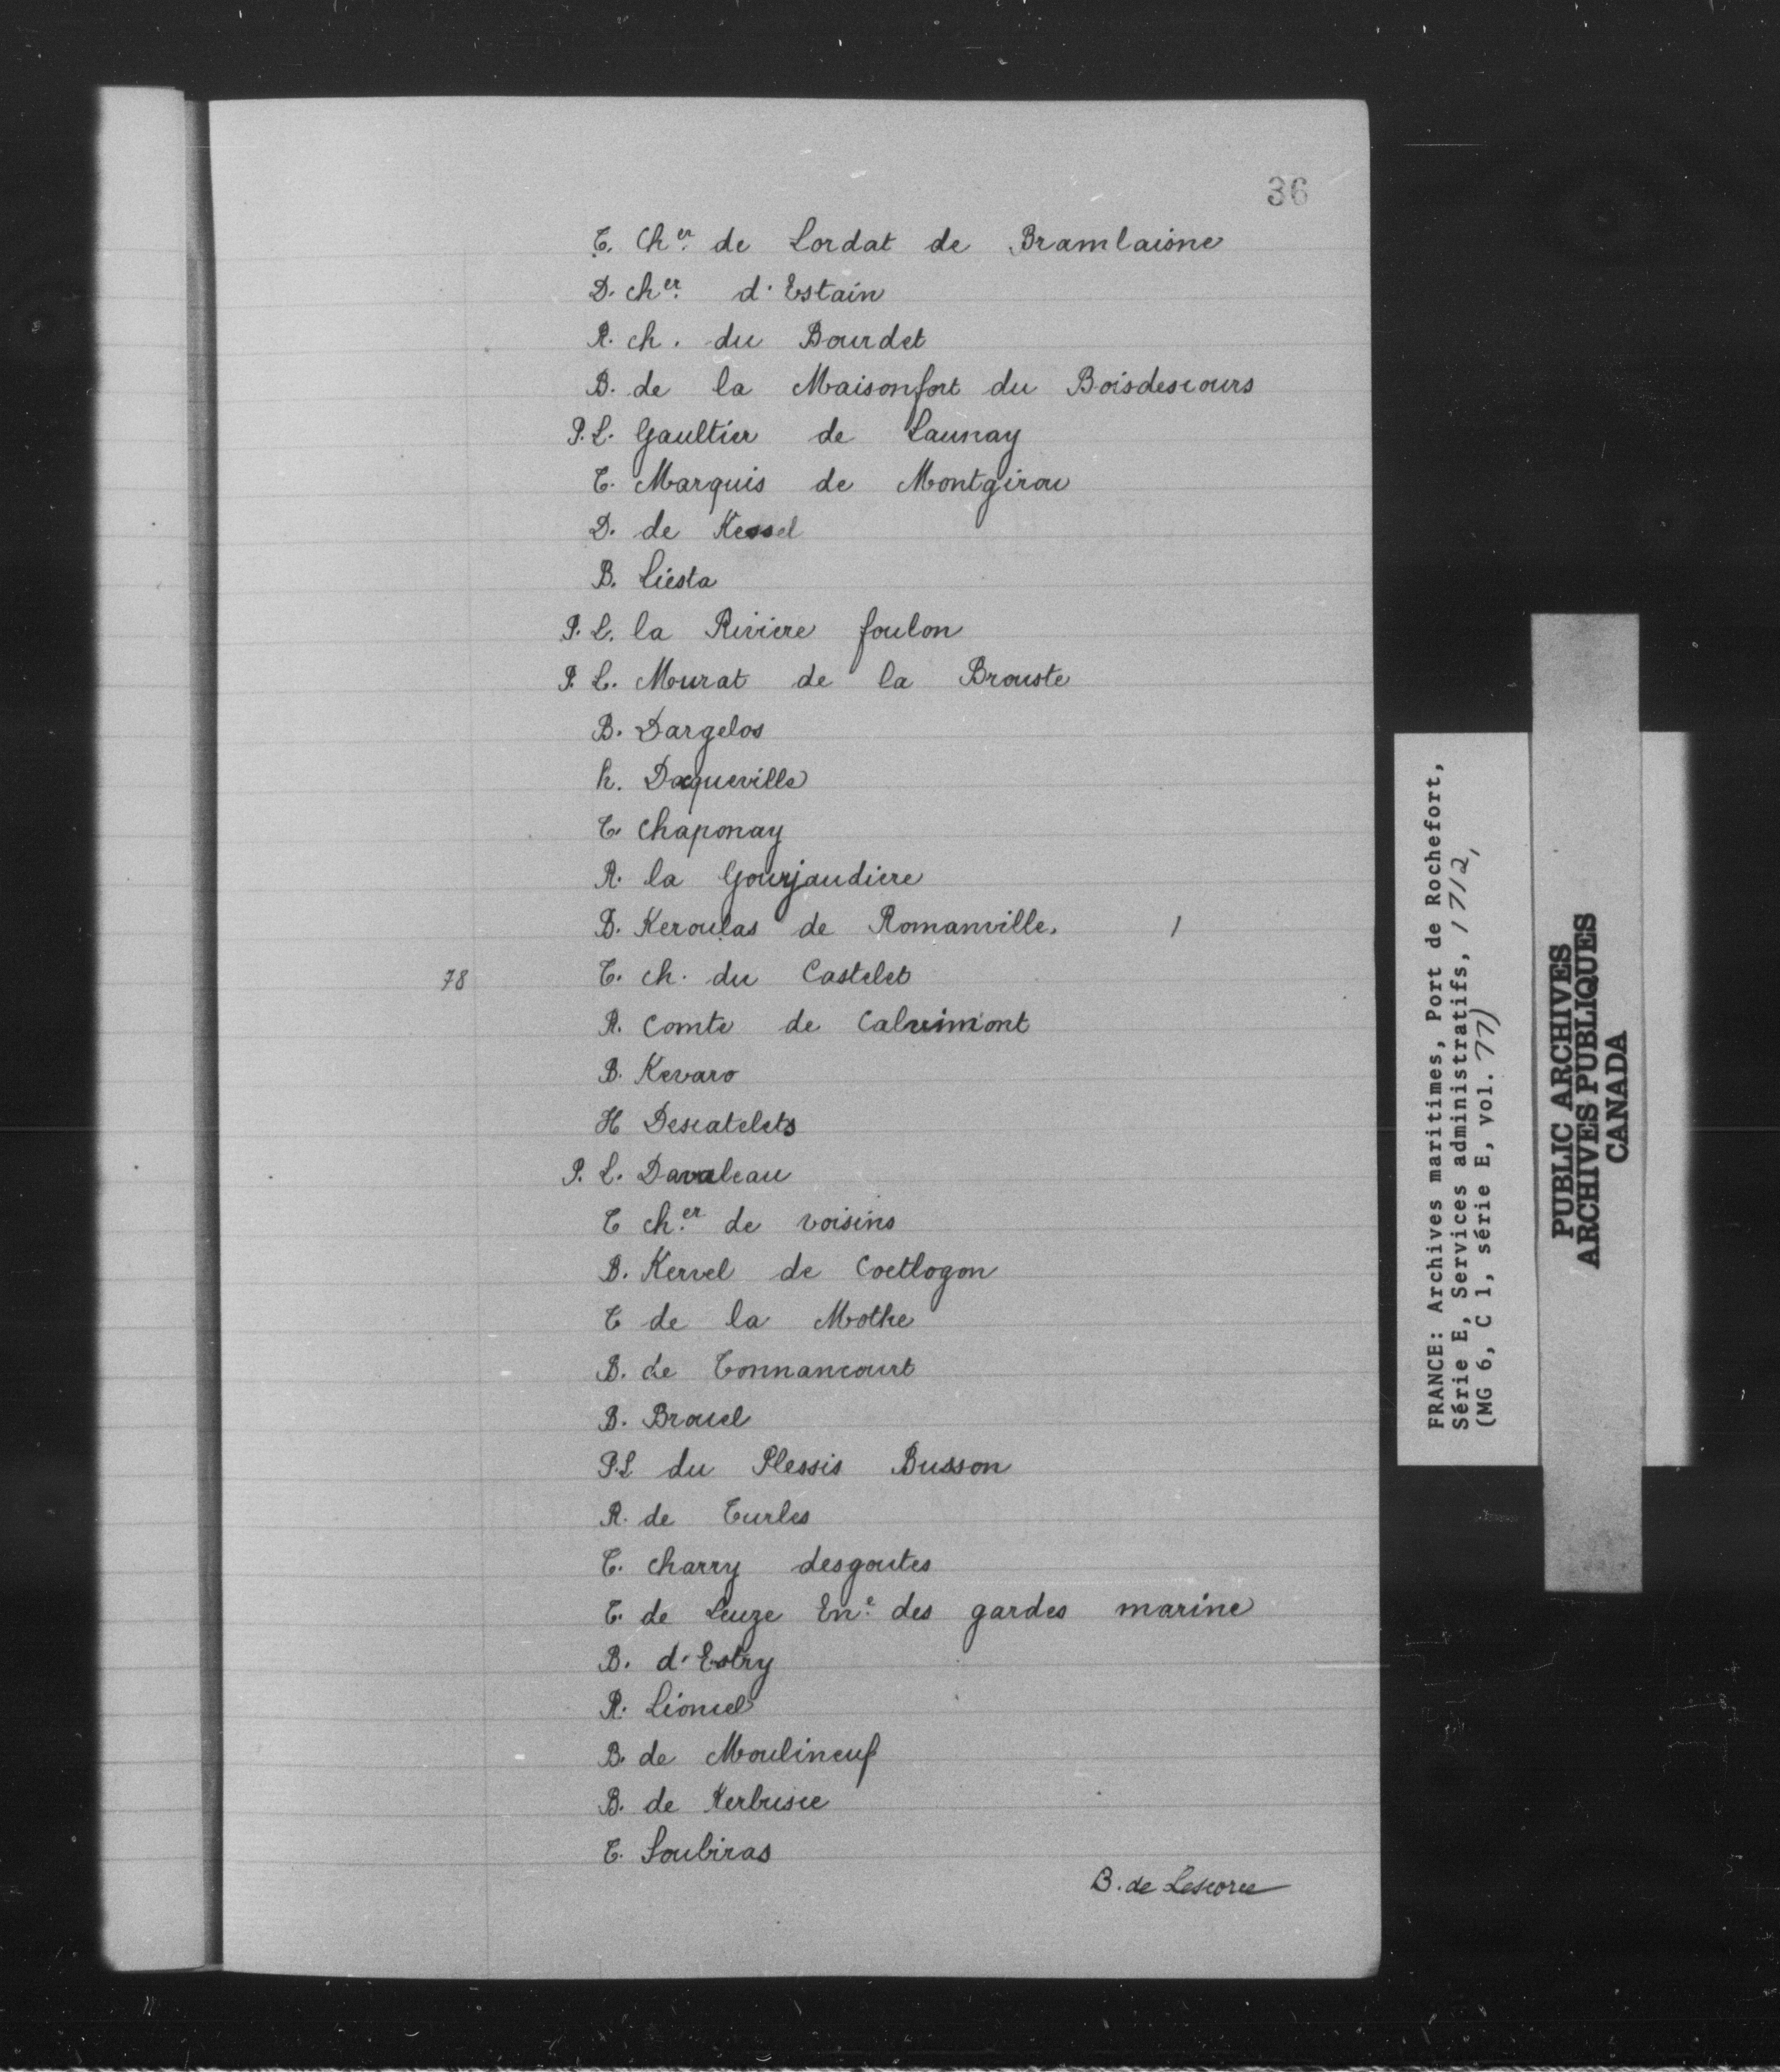 36
T. Cher de Lordat de Bramlaisne
D. cher d'Estain
R. ch. du Bourdet
B. de la Maisonfort du Boisdescours
P.L. Gaultier de Launay
T. Marquis de Montgirou
D. de Kessel
B. Liesta
P. L. la Riviere foulon
P. L. Mourat de la Brouste
B. Dargelos
h. Dacqueville
T. Chaponay
R. la Gourjaudiere
B. Keroulas de Romanville. 1
78 T. ch. du Castelet
R. Comte de Calvimont
B. Kevaro
H Descatelets
P. L. Davaleau
T cher de voisins
B. Kervel de Coetlogon
T de la Mothe
B. de Tonnancourt
B. Brouel
P.L du Plessis Busson
R. de Turles
T. Charry desgoutes
T. de Leuze Ene des gardes marine
B. d'Estry
R. Lioncel
B. de Moulineuf
B. de Kerbusee
T. Soubiras
B. de Lescoree
FRANCE: Archives maritimes, Port de Rochefort,
Série E, Services administratifs, 1712,
(MG 6, C 1, série E, vol. 77)
PUBLIC ARCHIVES
ARCHIVES PUBLIQUES
CANADA